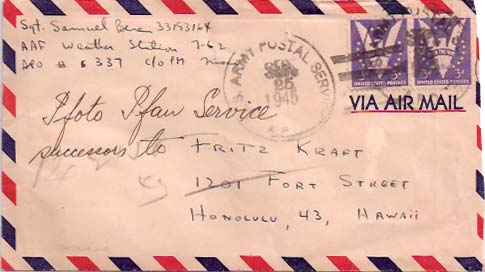 Sgt. Samuel Beren 33193164
AAF Weather Station 7-62
APO # 337 c/o PM
U.S. ARMY POSTAL SERVICE
SEP
25
1945
A.P.O.
UNITED STATES POSTAGE 3¢
UNITED STATES POSTAGE 3¢
VIA AIR MAIL
Pfoto Pfaun Service
successors to FRITZ KRAFT
1201 FORT STREET
HONOLULU, 43, HAWAII